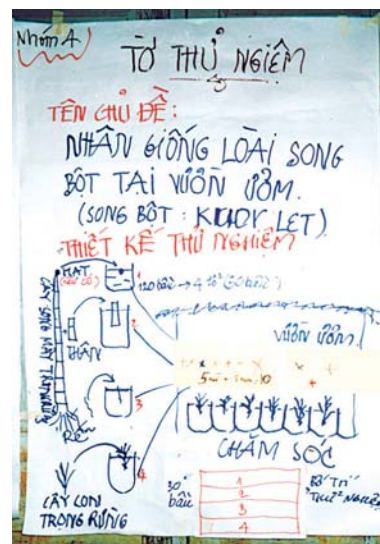 Nhóm 4
TỜ THỬ NGHIỆM
TÊN CHỦ ĐỀ:
NHÂN GIỐNG LOÀI SONG
BỘT TẠI VƯỜN ƯƠM.
(SONG BỘT: KUDY LET)
THIẾT KẾ THỬ NGHIỆM
HẠT
120 bầu → 4 tổ (30 bầu)
1
CÂY SONG MÂY
VƯỜN ƯƠM
2
THÂN
3
RỄ
CHĂM SÓC
4
CÂY CON
TRONG RỪNG
30
bầu
1
2
3
4
Bố Trí
Thử Nghiệm